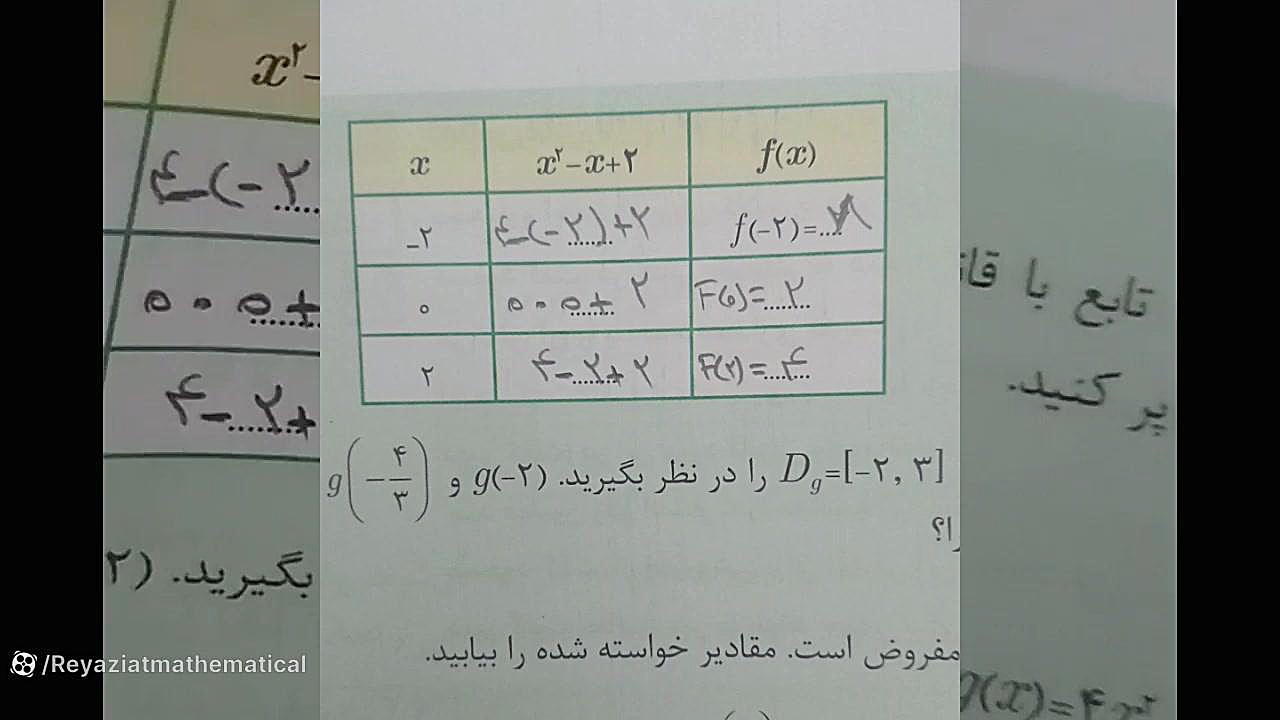 x f(x) x²-x+۲
-۲ ۴-(-۲)+۲ f(-۲)=...۸
۰ ۰-۰+۲ F(۰)=...۲
۲ ۴-۲+۲ F(۲)=...۴
D_g=[-۲, ۳] را در نظر بگیرید. g(-۲) و g(-۴/۳)
را؟
مفروض است. مقادیر خواسته شده را بیابید.
x²-
۴-(-۲
۰-۰+
۴-۲+
بگیرید. (۲
تابع با
پر کنید.
g(x)=۴x²
/Reyaziatmathematical